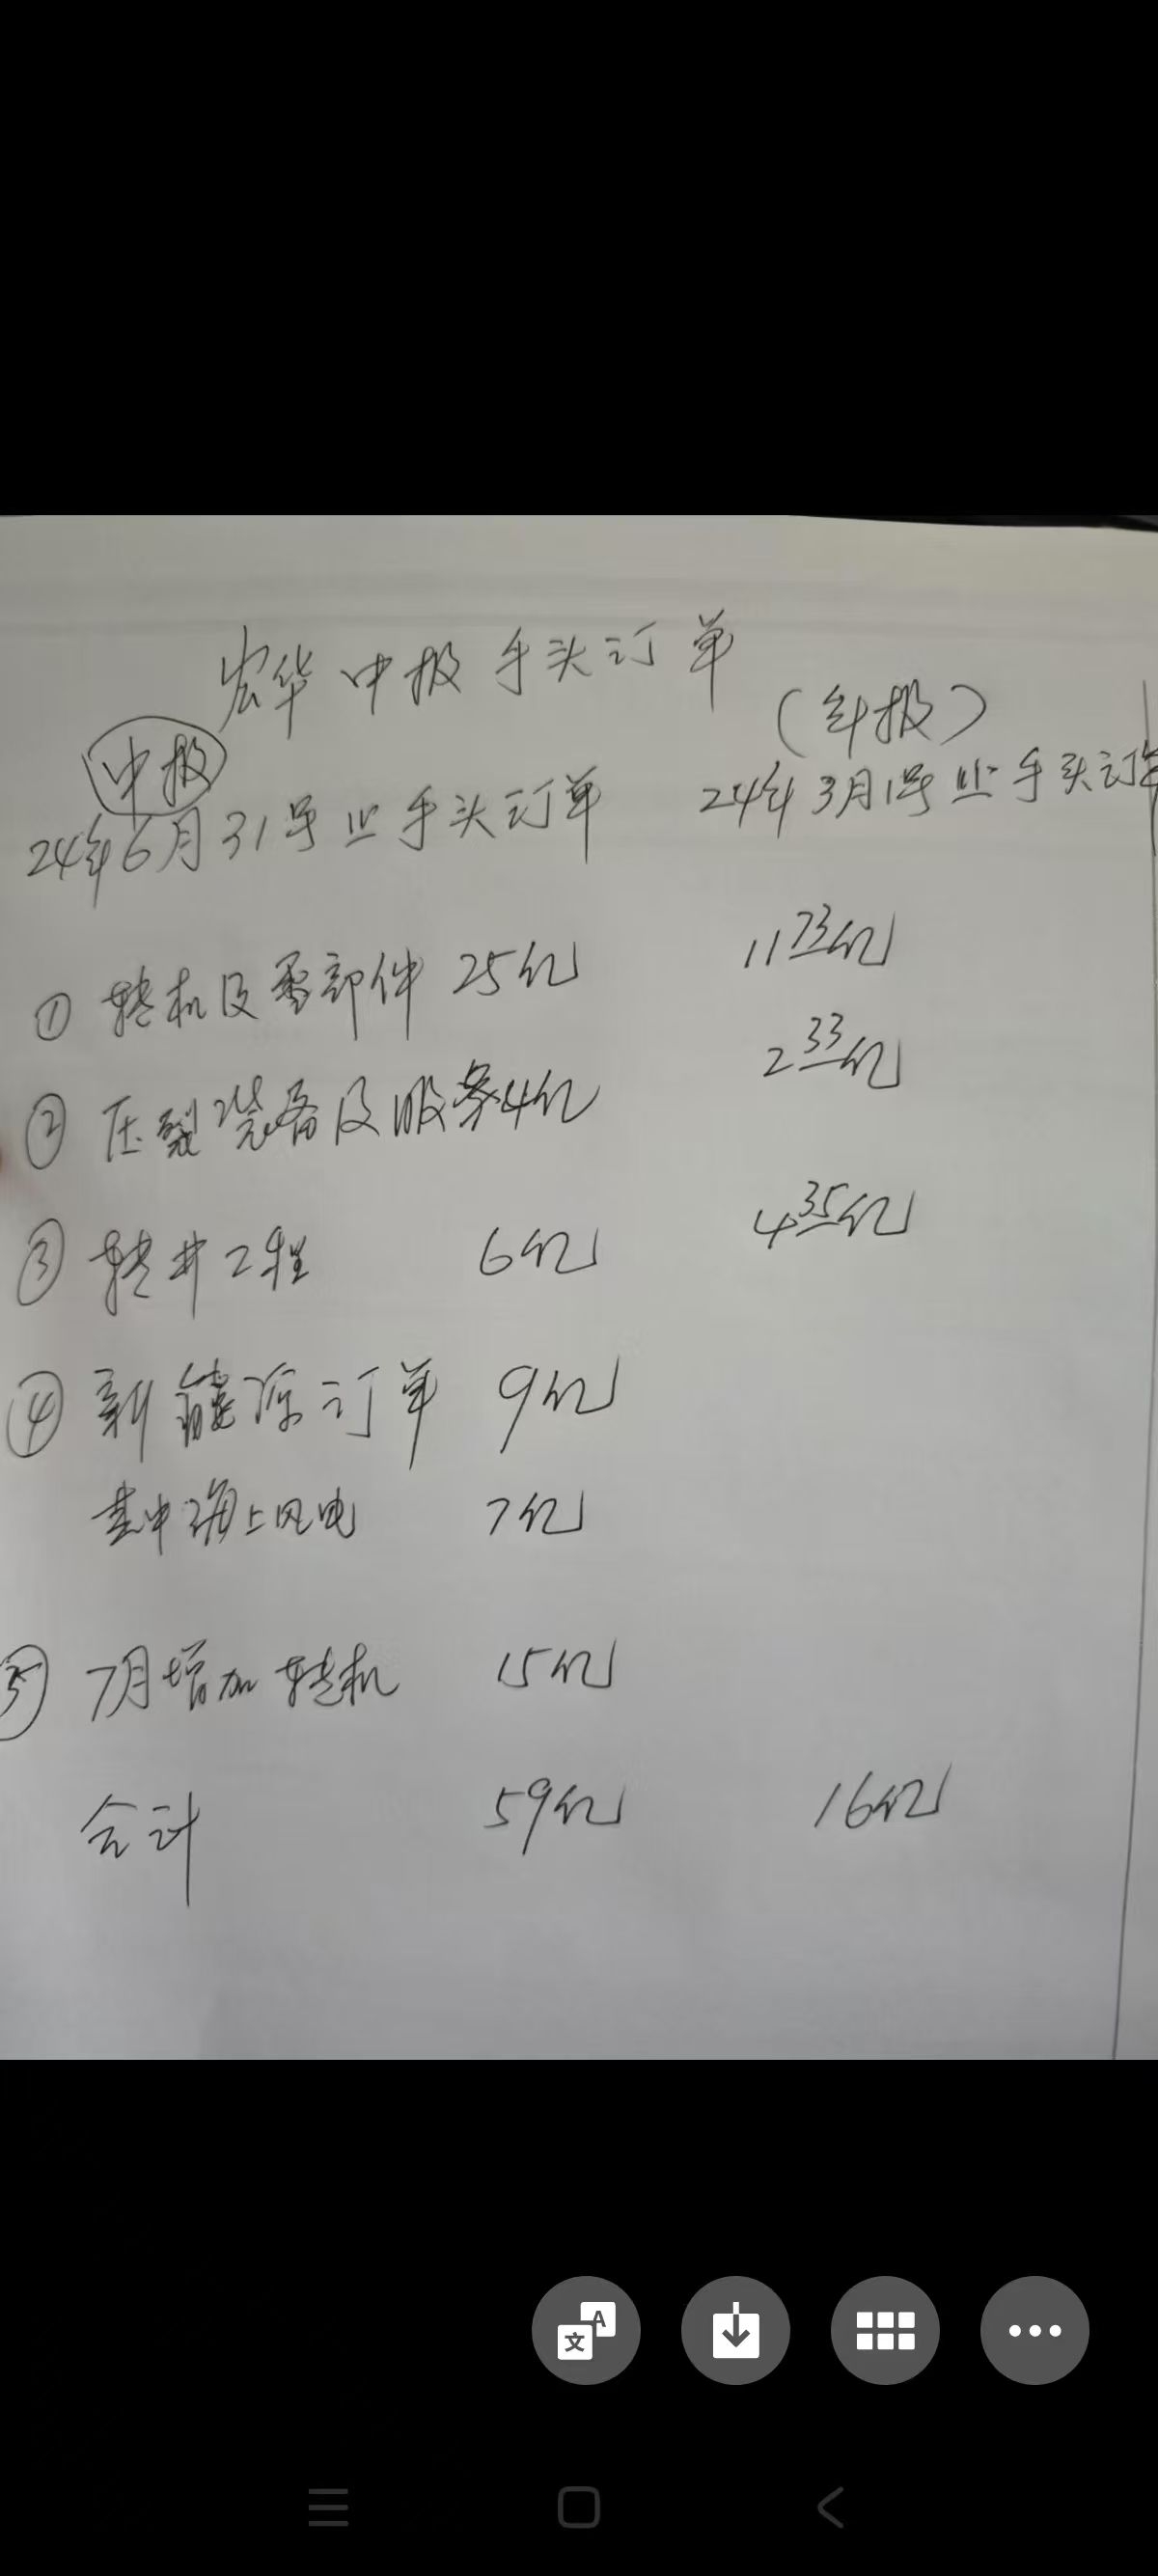 宏华中报手头订单
(年报)
中报
24年6月31号止手头订单 24年3月1号止手头订单
① 转机及零部件 25亿 11.73亿
② 压裂装备及服务4亿 2.33亿
③ 转井工程 6亿 4.35亿
④ 新能源订单 9亿
其中海上风电 7亿
⑤ 7月增加转机 15亿
合计 59亿 16亿
文 A